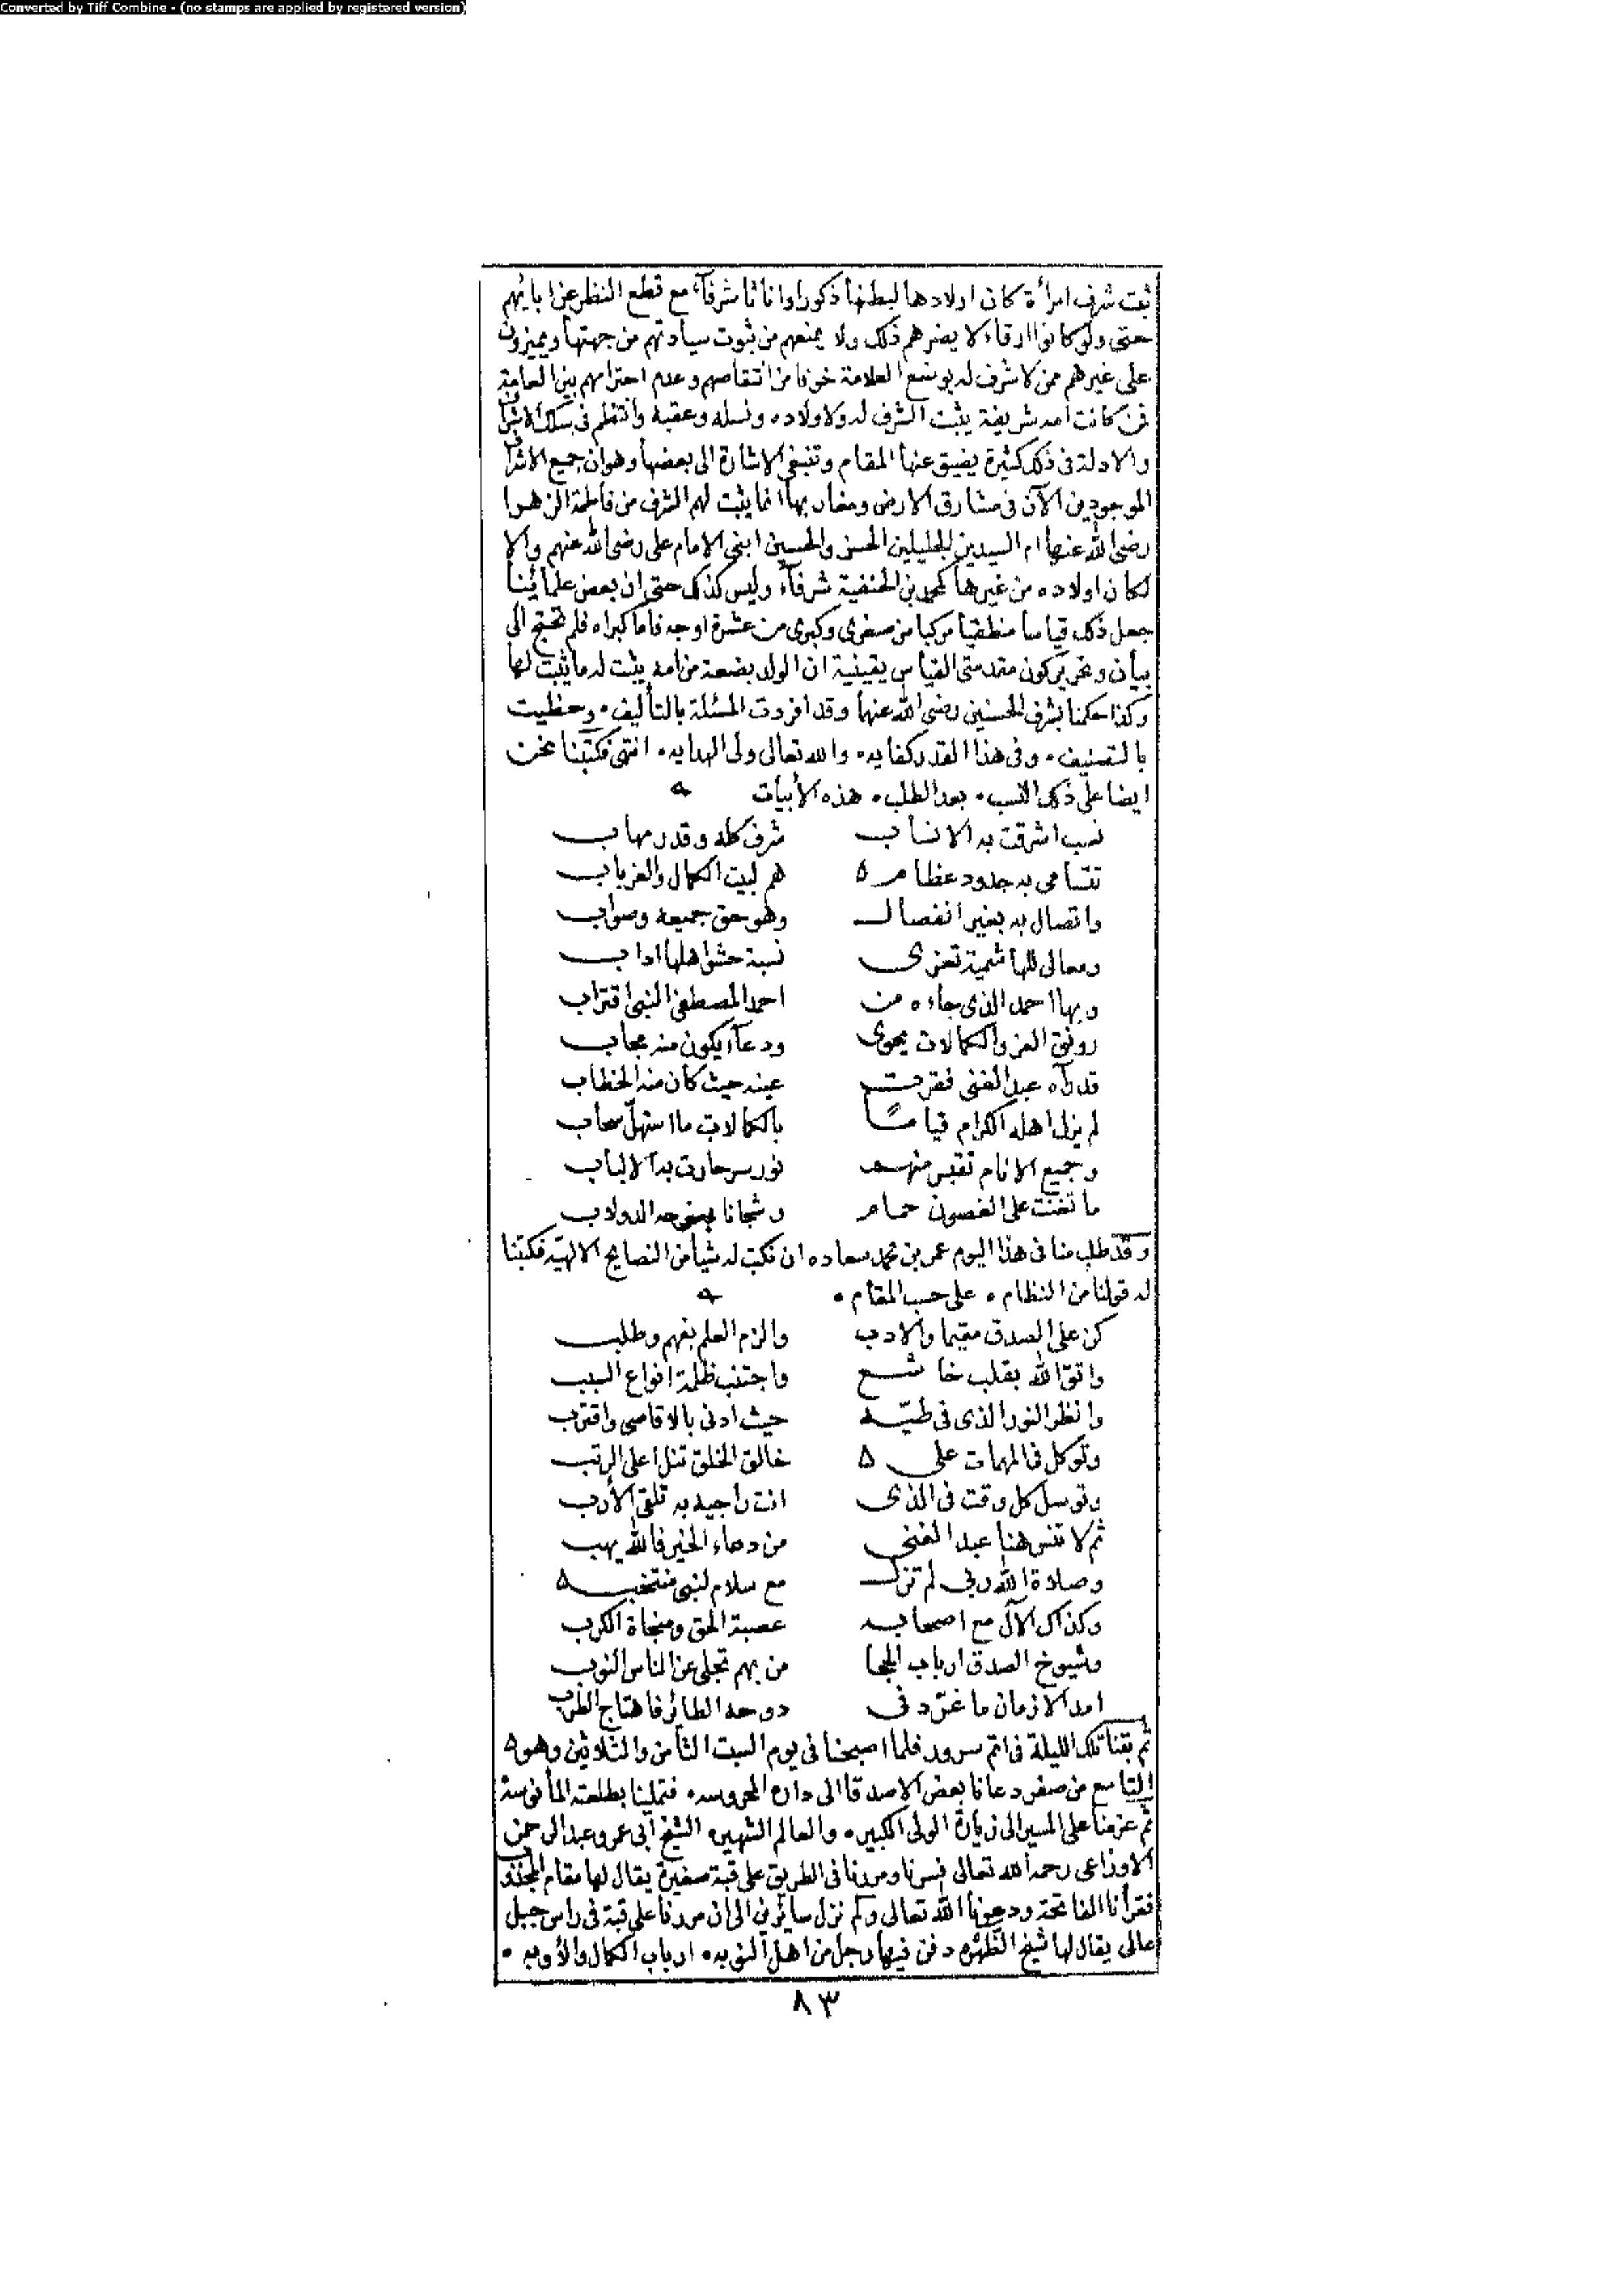 Converted by Tiff Combine - (no stamps are applied by registered version)
ثبت شرف امرأة كان اولادها لبطنها ذكورا واناثا شرفآء مع قطع النظر عن ابائهم
حتى ولو كانوا ارقاء لا يضرهم ذلك ولا يمنعهم من ثبوت سيادتهم من جهتها ويميزون
على غيرهم ممن لا شرف له بوضع العلامة خوفا من انتقاصهم وعدم احترامهم بين العامة
فمن كانت امه شريفة يثبت الشرف له ولاولاده ونسله وعقبه وانتظم فى سلك الاشراف
والادلة فى ذلك كثيرة يضيق عنها المقام وتنبغى الاشارة الى بعضها وهو ان جميع الاشراف
الموجودين الآن فى مشارق الارض ومغاربها انما يثبت لهم الشرف من فاطمة الزهرا
رضى الله عنها ام السيدين الجليلين الحسن والحسين ابنى الامام على رضى الله عنهم والا
لكان اولاده من غيرها كمحمد بن الحنفية شرفآء وليس كذلك حتى ان بعض علمائنا
جعل ذلك قياسا منطقيا مركبا من صغرى وكبرى من عشرة اوجه فاما كبراه فلم تحتج الى
بيان وتحرير كون مقدمتى القياس يقينية ان الولد بضعة من امه يثبت له ما ثبت لها
وكذا حكمنا بشرف الحسنين رضى الله عنهما وقد افردت المسئلة بالتأليف . وحظيت
بالتصنيف . وفى هذا القدر كفايه . والله تعالى ولى الهدايه . انتهى فكتبنا نحن
ايضا على ذلك النسب . بعد الطلب . هذه الأبيات
نسب اشرقت به الانساب شرف كله وقدر مهاب
تتسامى به جدود عظام هم لبيت الكمال والعز باب
واتصال به بغير انفصال وهو حق جميعه وصواب
ومعالى للهاشمية تعزى نسبة حشو اهلها اداب
وبها احمد الذى جاءه من احمد المصطفى النبى اقتراب
رونق العز والكمالات يحوى ودعآء يكون منه مجاب
قد رآه عبد الغنى فقرت عينه حيث كان منه الخطاب
لم يزل اهله الكرام قياما بالكمالات ما استهلّ سحاب
وجميع الانام تقبس منهم نور سر حارت به الالباب
ما تغنت على الغصون حمام وشجانا الدولاب
وقد طلب منا فى هذا اليوم عمر بن محمد سعاده ان نكتب له شيأ من النصايح الالهيّة فكتبنا
له قولنا من النظام . على حسب المقام .
كن على الصدق مقيما والادب والزم العلم بفهم وطلب
واتق الله بقلب خاشع واجتنب ظلمة انواع السبب
وانظر النور الذى فى طيّه حيث ادنى بالاقاصى واقترب
وتوكل فى المهمات على خالق الخلق تنل اعلى الرتب
وتوسل كل وقت فى الذى انت راجيه به تلقى الأرب
ثم لا تنس هنا عبد الغنى من دعاء الخير فالله يهب
وصلاة الله ربى لم تزل مع سلام لنبى منتخب
وكذاك الآل مع اصحابه عصبة الحق ومنجاة الكرب
وشيوخ الصدق ارباب الحجا من بهم تجلى عن الناس النوب
امد الازمان ما غرّد فى دوحه الطائر فاهتاج الطرب
ثم بتنا تلك الليلة فى اتم سرور فلما اصبحنا فى يوم السبت الثامن والثلاثين وهو
التاسع من صفر دعانا بعض الاصدقا الى داره المحروسه . فتملينا بطلعته المأنوسه
ثم عزمنا على المسير الى زيارة الولى الكبير . والعالم الشهير . الشيخ ابى عمرو عبد الرحمن
الاوزاعى رحمه الله تعالى فسرنا ومررنا فى الطريق على قبة صغيرة يقال لها مقام
فقرأنا الفاتحة ودعونا الله تعالى ولم نزل سائرين الى ان مررنا على قبة فى راس جبل
عالى يقال لها شيخ الظهره دفن فيها رجل من اهل النوبه . ارباب الكمال والأوبه .
٨٣